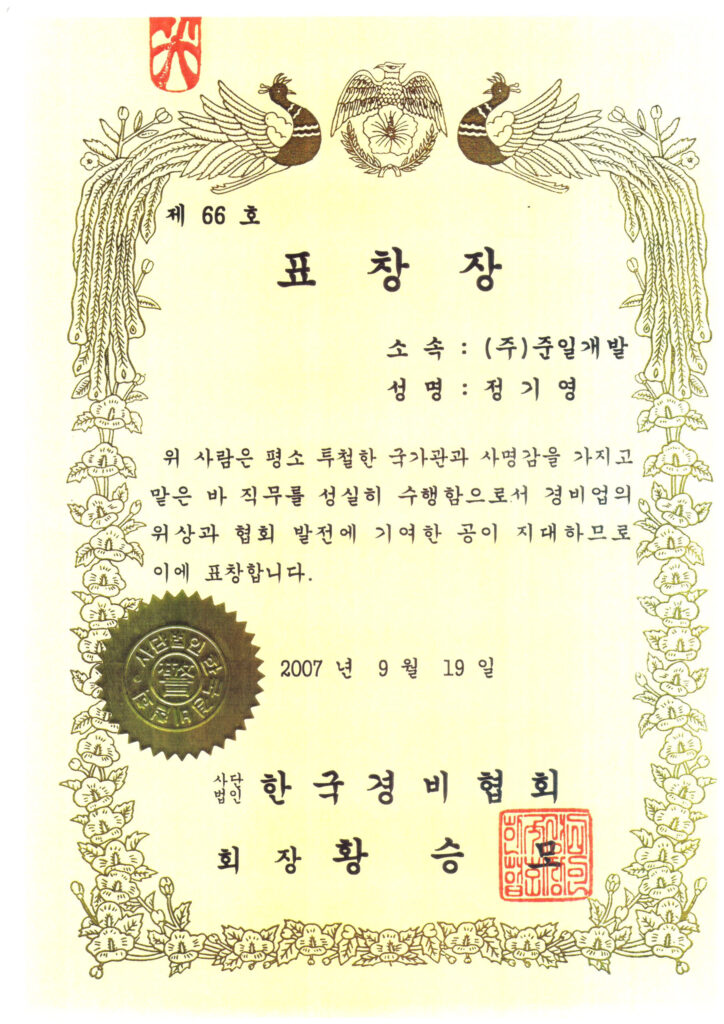 제 66 호
표 창 장
소 속 : (주)준일개발
성 명 : 정 기 영
위 사람은 평소 투철한 국가관과 사명감을 가지고
맡은 바 직무를 성실히 수행함으로서 경비업의
위상과 협회 발전에 기여한 공이 지대하므로
이에 표창합니다.
사단법인
2007 년 9 월 19 일
사단
법인 한국경비협회
회 장 황 승 모